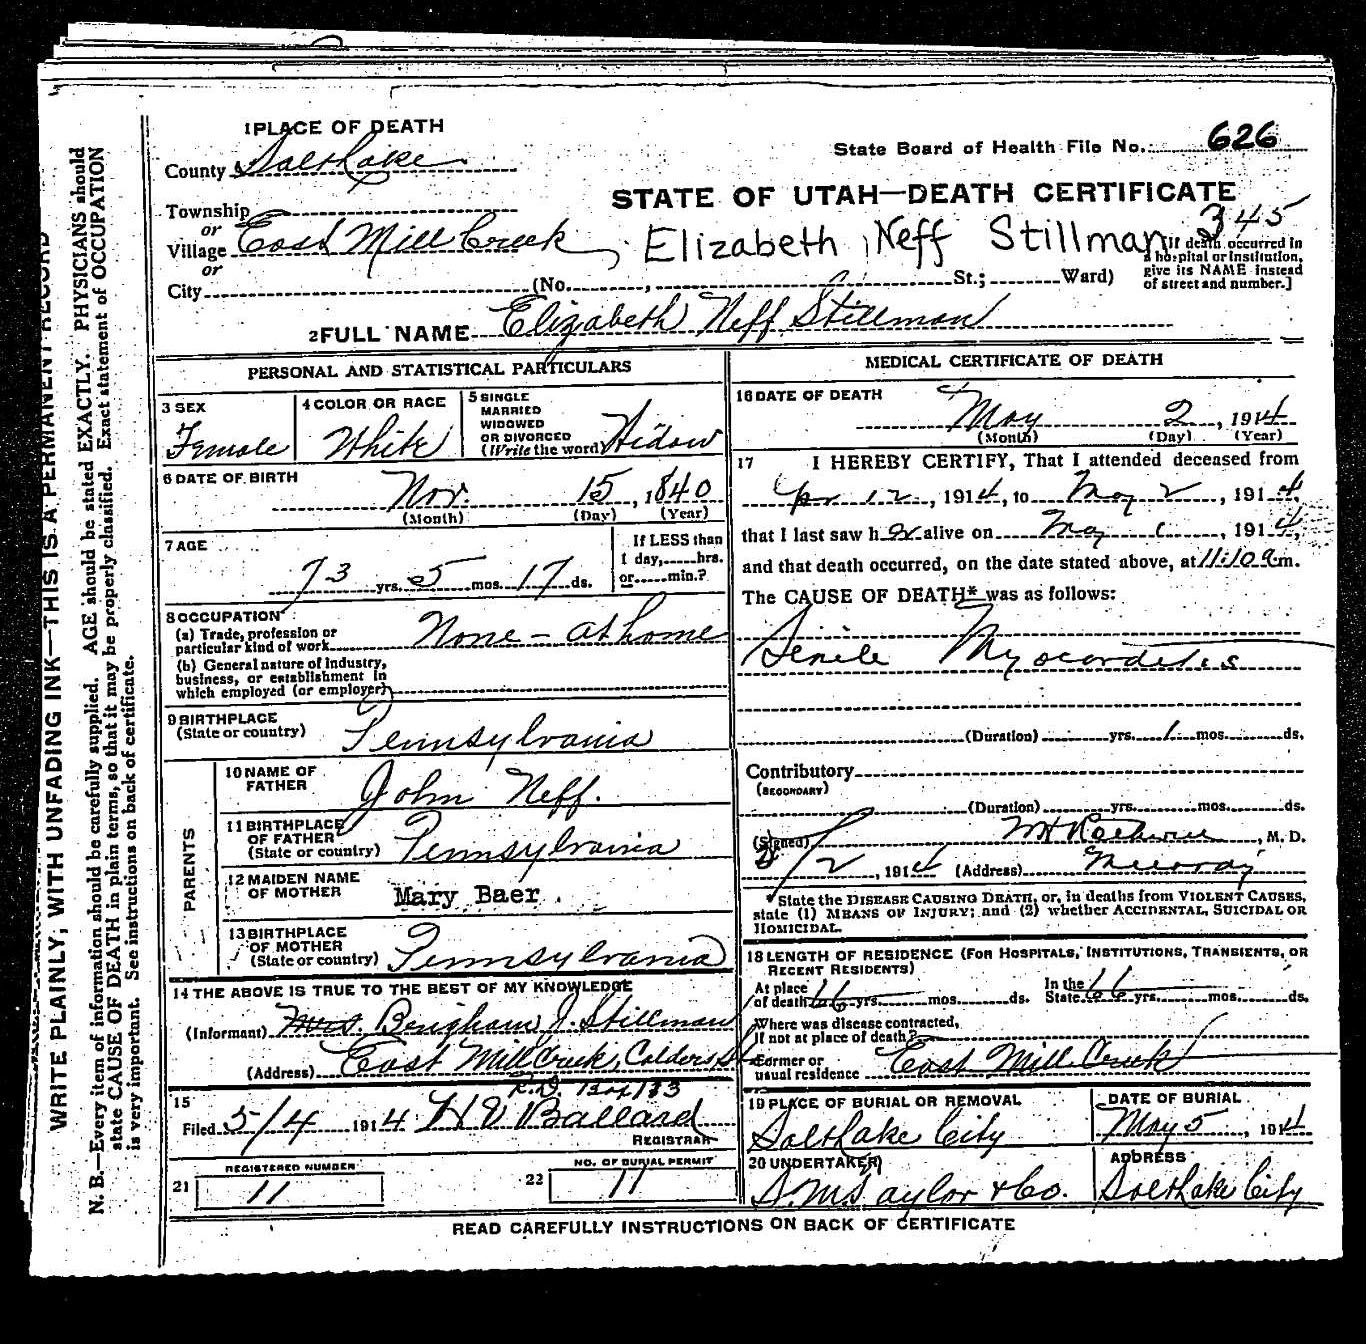 WRITE PLAINLY, WITH UNFADING INK—THIS IS A PERMANENT RECORD
N. B.—Every item of information should be carefully supplied. AGE should be stated EXACTLY. PHYSICIANS should
state CAUSE OF DEATH in plain terms, so that it may be properly classified. Exact statement of OCCUPATION
is very important. See instructions on back of certificate.
1 PLACE OF DEATH
County Salt Lake
State Board of Health File No. 626
STATE OF UTAH—DEATH CERTIFICATE
345
Township
or
Village East Mill Creek
Elizabeth Neff Stillman
or
City (No. , St.; Ward)
[If death occurred in
a hospital or institution,
give its NAME instead
of street and number.]
2 FULL NAME Elizabeth Neff Stillman
PERSONAL AND STATISTICAL PARTICULARS
3 SEX
Female
4 COLOR OR RACE
White
5 SINGLE
MARRIED
WIDOWED
OR DIVORCED
(Write the word) Widow
6 DATE OF BIRTH
Nov. 15, 1840
(Month) (Day) (Year)
7 AGE
73 yrs. 5 mos. 17 ds.
If LESS than
1 day, hrs.
or min.?
8 OCCUPATION
(a) Trade, profession or
particular kind of work None - at home
(b) General nature of Industry,
business, or establishment in
which employed (or employer)
9 BIRTHPLACE
(State or country) Pennsylvania
PARENTS
10 NAME OF
FATHER John Neff.
11 BIRTHPLACE
OF FATHER
(State or country) Pennsylvania
12 MAIDEN NAME
OF MOTHER Mary Baer
13 BIRTHPLACE
OF MOTHER
(State or country) Pennsylvania
14 THE ABOVE IS TRUE TO THE BEST OF MY KNOWLEDGE
(Informant) Mrs. Brigham J. Stillman
(Address) East Mill Creek, Calders St
R.D. Box 133
15
Filed 5/4 1914 H V Ballard
REGISTRAR
REGISTERED NUMBER
21 11
NO. OF BURIAL PERMIT
22 11
MEDICAL CERTIFICATE OF DEATH
16 DATE OF DEATH
May 2, 1914
(Month) (Day) (Year)
17 I HEREBY CERTIFY, That I attended deceased from
Apr 12, 1914, to May 2, 1914,
that I last saw h er alive on May 1, 1914,
and that death occurred, on the date stated above, at 11:10 a m.
The CAUSE OF DEATH* was as follows:
Senile Myocarditis
(Duration) yrs. 1 mos. ds.
Contributory
(SECONDARY)
(Duration) yrs. mos. ds.
(Signed) , M. D.
5/2, 1914 (Address) Murray
*State the DISEASE CAUSING DEATH, or, in deaths from VIOLENT CAUSES,
state (1) MEANS OF INJURY; and (2) whether ACCIDENTAL, SUICIDAL OR
HOMICIDAL.
18 LENGTH OF RESIDENCE (FOR HOSPITALS, INSTITUTIONS, TRANSIENTS, OR
RECENT RESIDENTS)
At place
of death 66 yrs. mos. ds.
In the
State 66 yrs. mos. ds.
Where was disease contracted,
if not at place of death?
Former or
usual residence East Mill Creek
19 PLACE OF BURIAL OR REMOVAL
Salt Lake City
DATE OF BURIAL
May 5, 1914
20 UNDERTAKER
S. M. Taylor & Co.
ADDRESS
Salt Lake City
READ CAREFULLY INSTRUCTIONS ON BACK OF CERTIFICATE